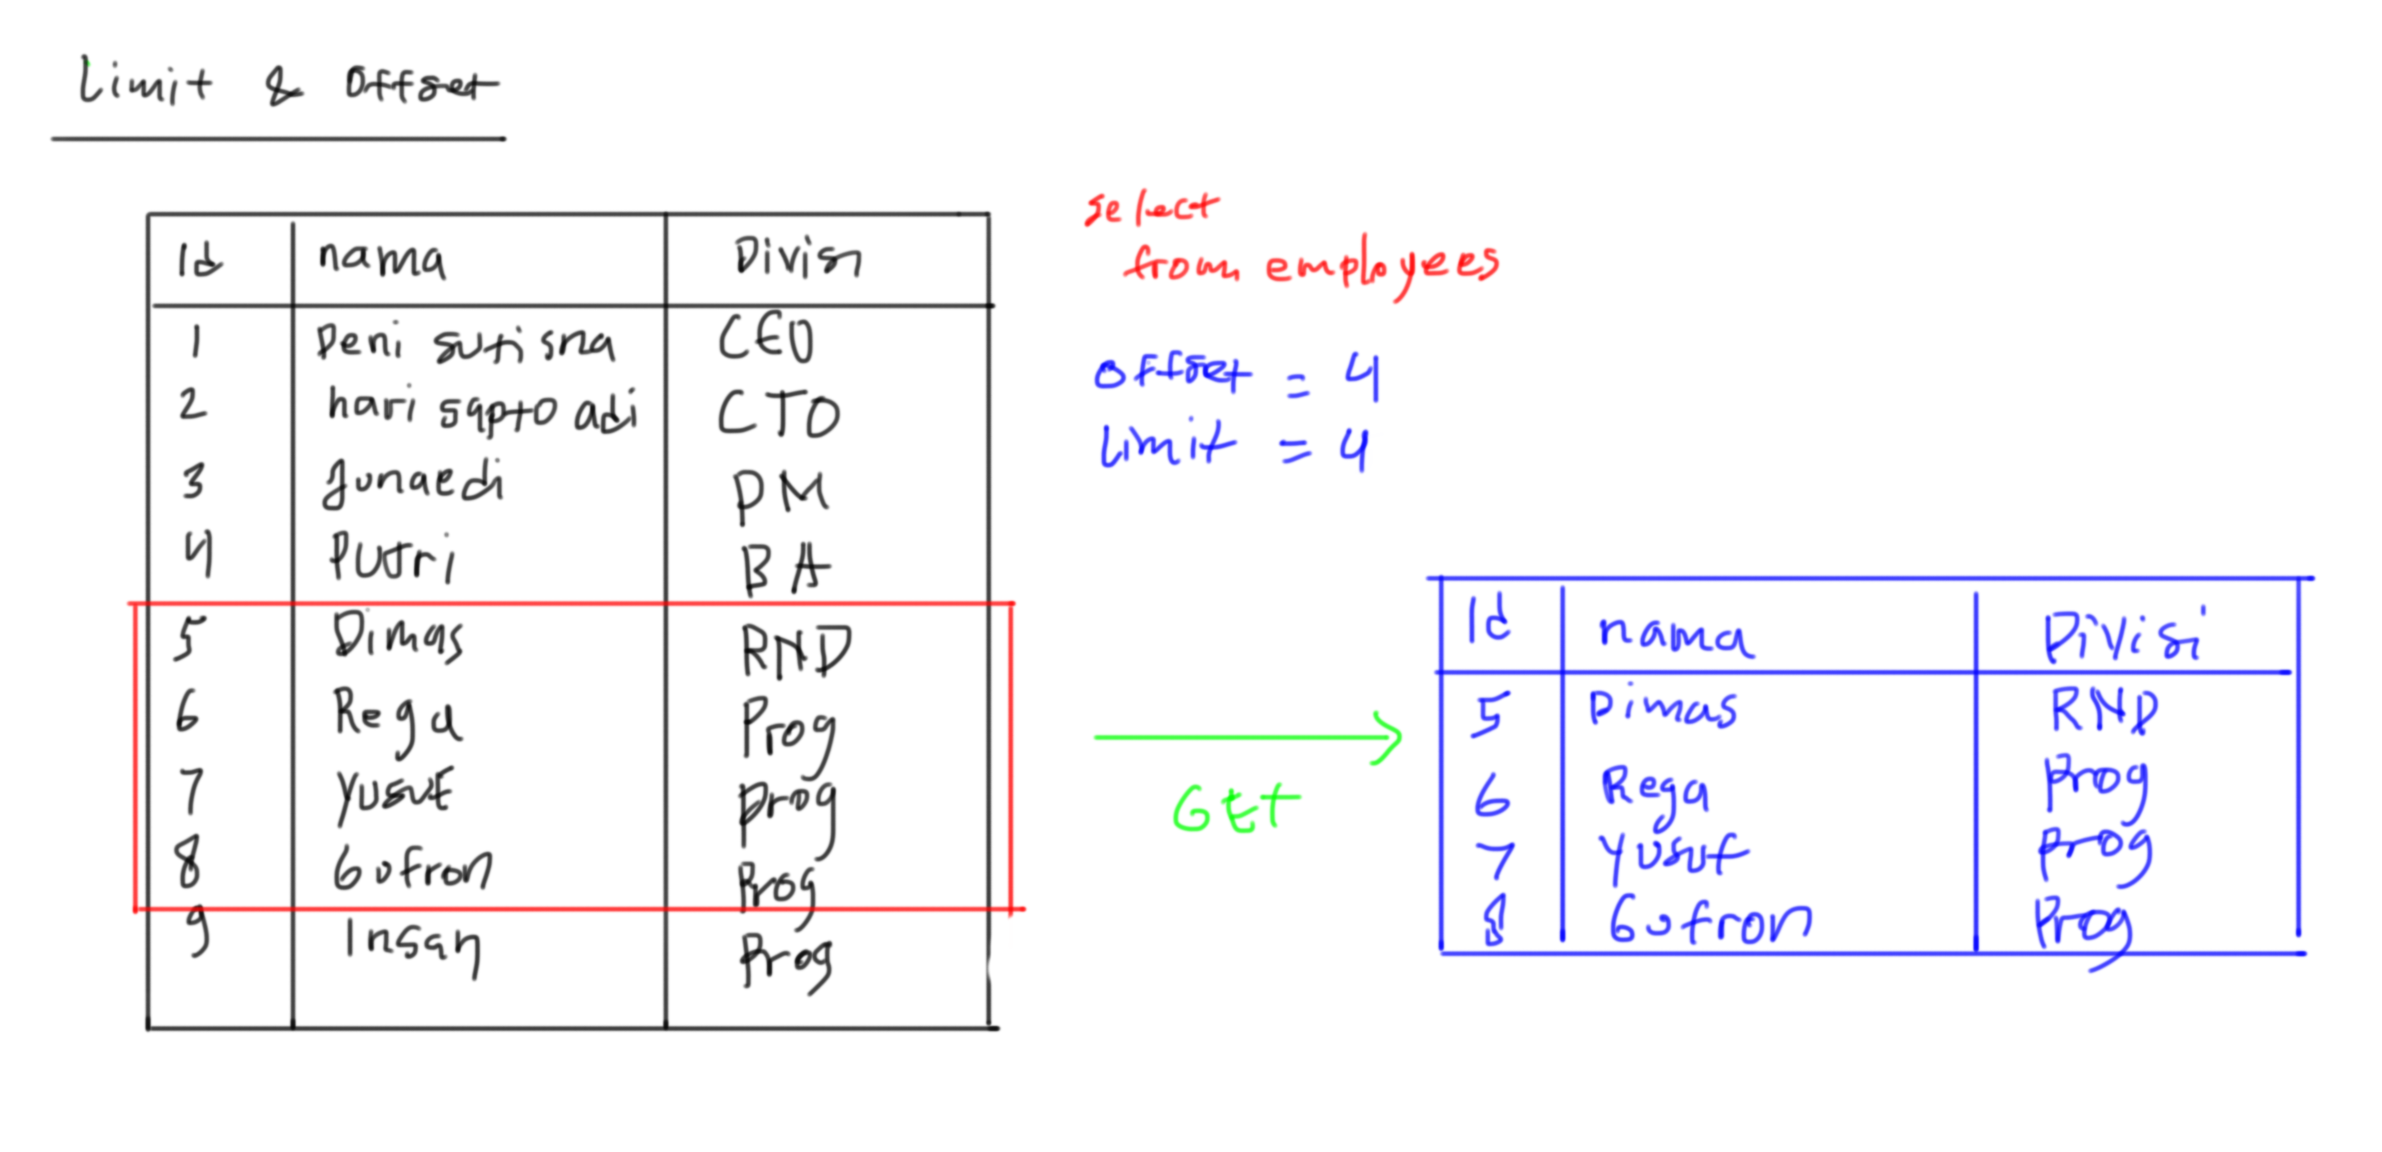 Limit & Offset
Id nama Divisi
1 Deni sutisna CEO
2 hari sapto adi CTO
3 Junaedi PM
4 Putri BA
5 Dimas RND
6 Rega Prog
7 Yusuf Prog
8 Gofron Prog
9 Insan Prog
select
from employees
offset = 4
limit = 4
Get
Id nama Divisi
5 Dimas RND
6 Rega Prog
7 Yusuf Prog
8 Gofron Prog